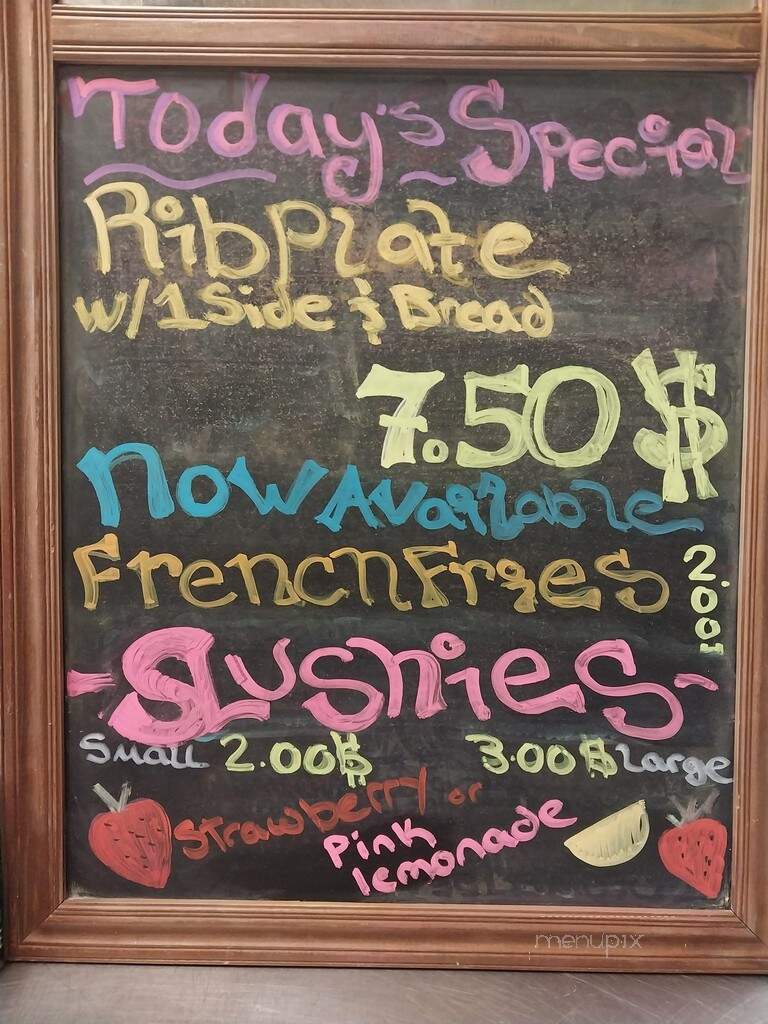 Today's Special
Rib Plate
w/1 Side & Bread
7.50 $
Now Available
French Fries 2.00
-Slushies-
Small 2.00$ 3.00$ Large
Strawberry or
Pink
lemonade
menupix